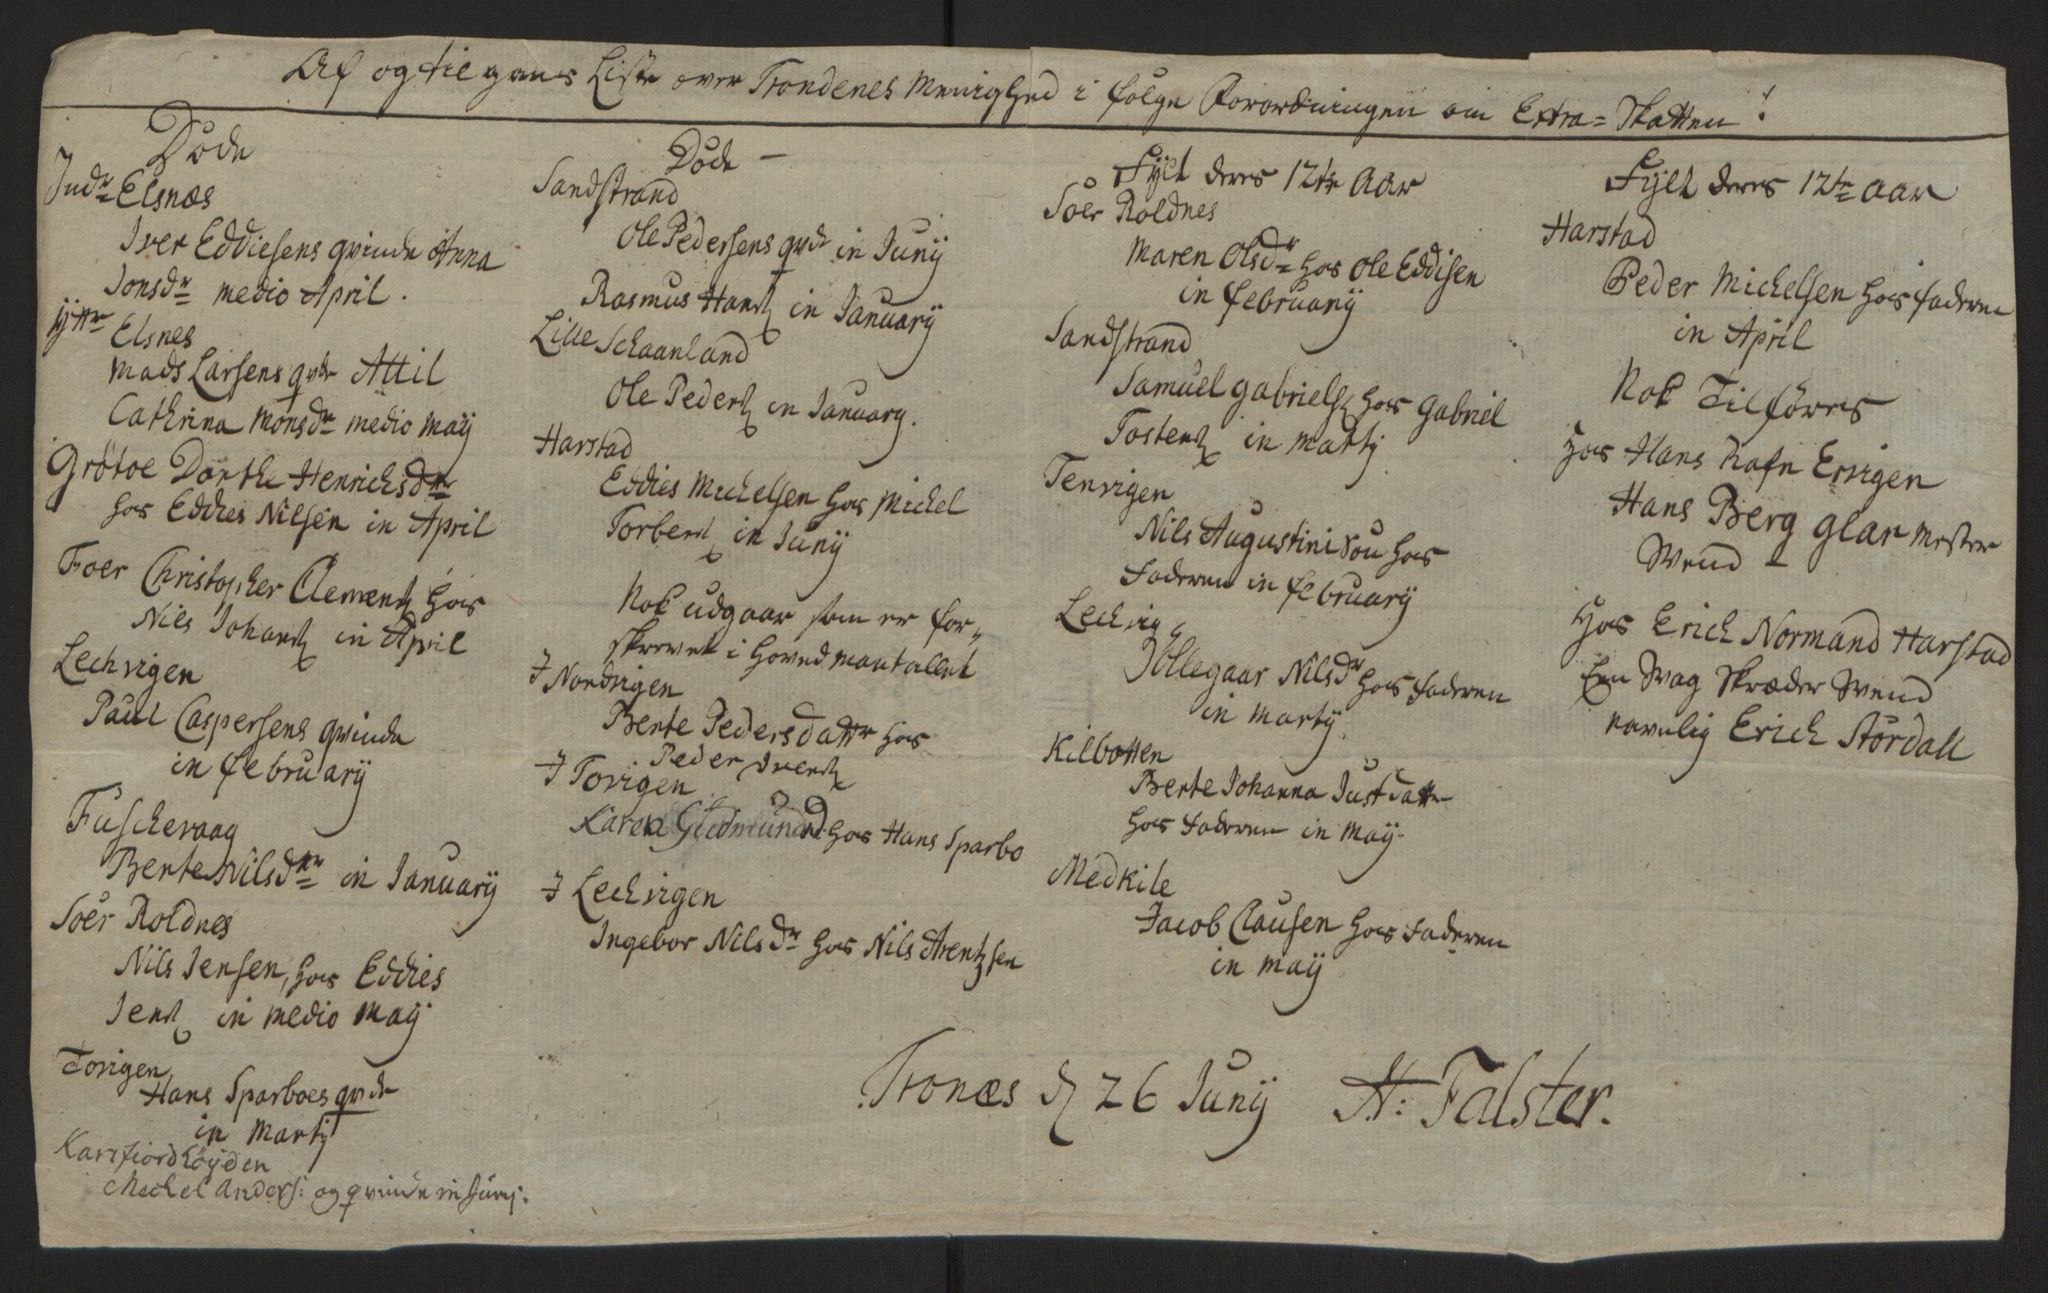 Af og til gangs Liste over Trondenes Menighed i følge Forordningen om Extra-Skatten!
Döde
Indr Elsnæs
Iver Eddiesens qvinde Anna
Jonsdr medio April.
Ÿttr Elsnes
Mads Larsens qvde Attil
Cathrina Monsdr medio Maÿ
Grötöe Dorthe Henrichsdr
hos Eddies Nilsen in April
Froer Christopher Clements hos
Nils Johans in April
Lechvigen
Paul Caspersens qvinde
in februarÿ
Fuschevaag
Berte Nilsdtr in Januarÿ
Soer Roldnes
Nils Jensen, hos Eddies
Jens in medio Maÿ
Torigen
Hans Sparboes qvde
in Martÿ
Karsfiordhöÿden
Mechel Anders: og qvinde in Junij.
Döde -
Sandstrand
Ole Pedersens qvde in Junÿ
Rasmus Hans in Januarÿ
Lille Schaanland
Ole Peders in January.
Harstad
Eddies Michelsen hos Michel
Torbers in Junÿ
Nok udgaar som er for,,
skrevet i Hovedmantallet
I Nordvigen
Berte Pedersdattr hos
Peder Ivers
I Torigen
Karen Gudmunds hos Hans Sparbo
I Lechvigen
Ingebor Nilsdr hos Nils Arentzsen
Fylt deres 12te Aar
Soer Roldnes
Maren Olsdr hos Ole Eddisen
in februarÿ
Sandstrand
Samuel Gabriels hos Gabriel
Tostens in Martÿ
Tenvigen
Nils Augustini Sön hos
Faderen in februarÿ
Lechvig,
Jöllegaar Nilsdr hos Faderen
in Martÿ.
Kilbotten
Berte Johanna Justdattr
hos Faderen in Maÿ.
Medkile
Jacob Clausen hos Faderen
in Maÿ
Fylt deres 12te Aar
Harstad
Peder Michelsen hos Faderen
in April
Nok Tilföres
hos Hans Rafn Ervigen
Hans Berg Glar Mester
Svend -
Hos Erich Normand Harstad
Een Svag Skræder Svend
navnlig Erich Stördall
Tronæs d 26 Junÿ A: Falster.